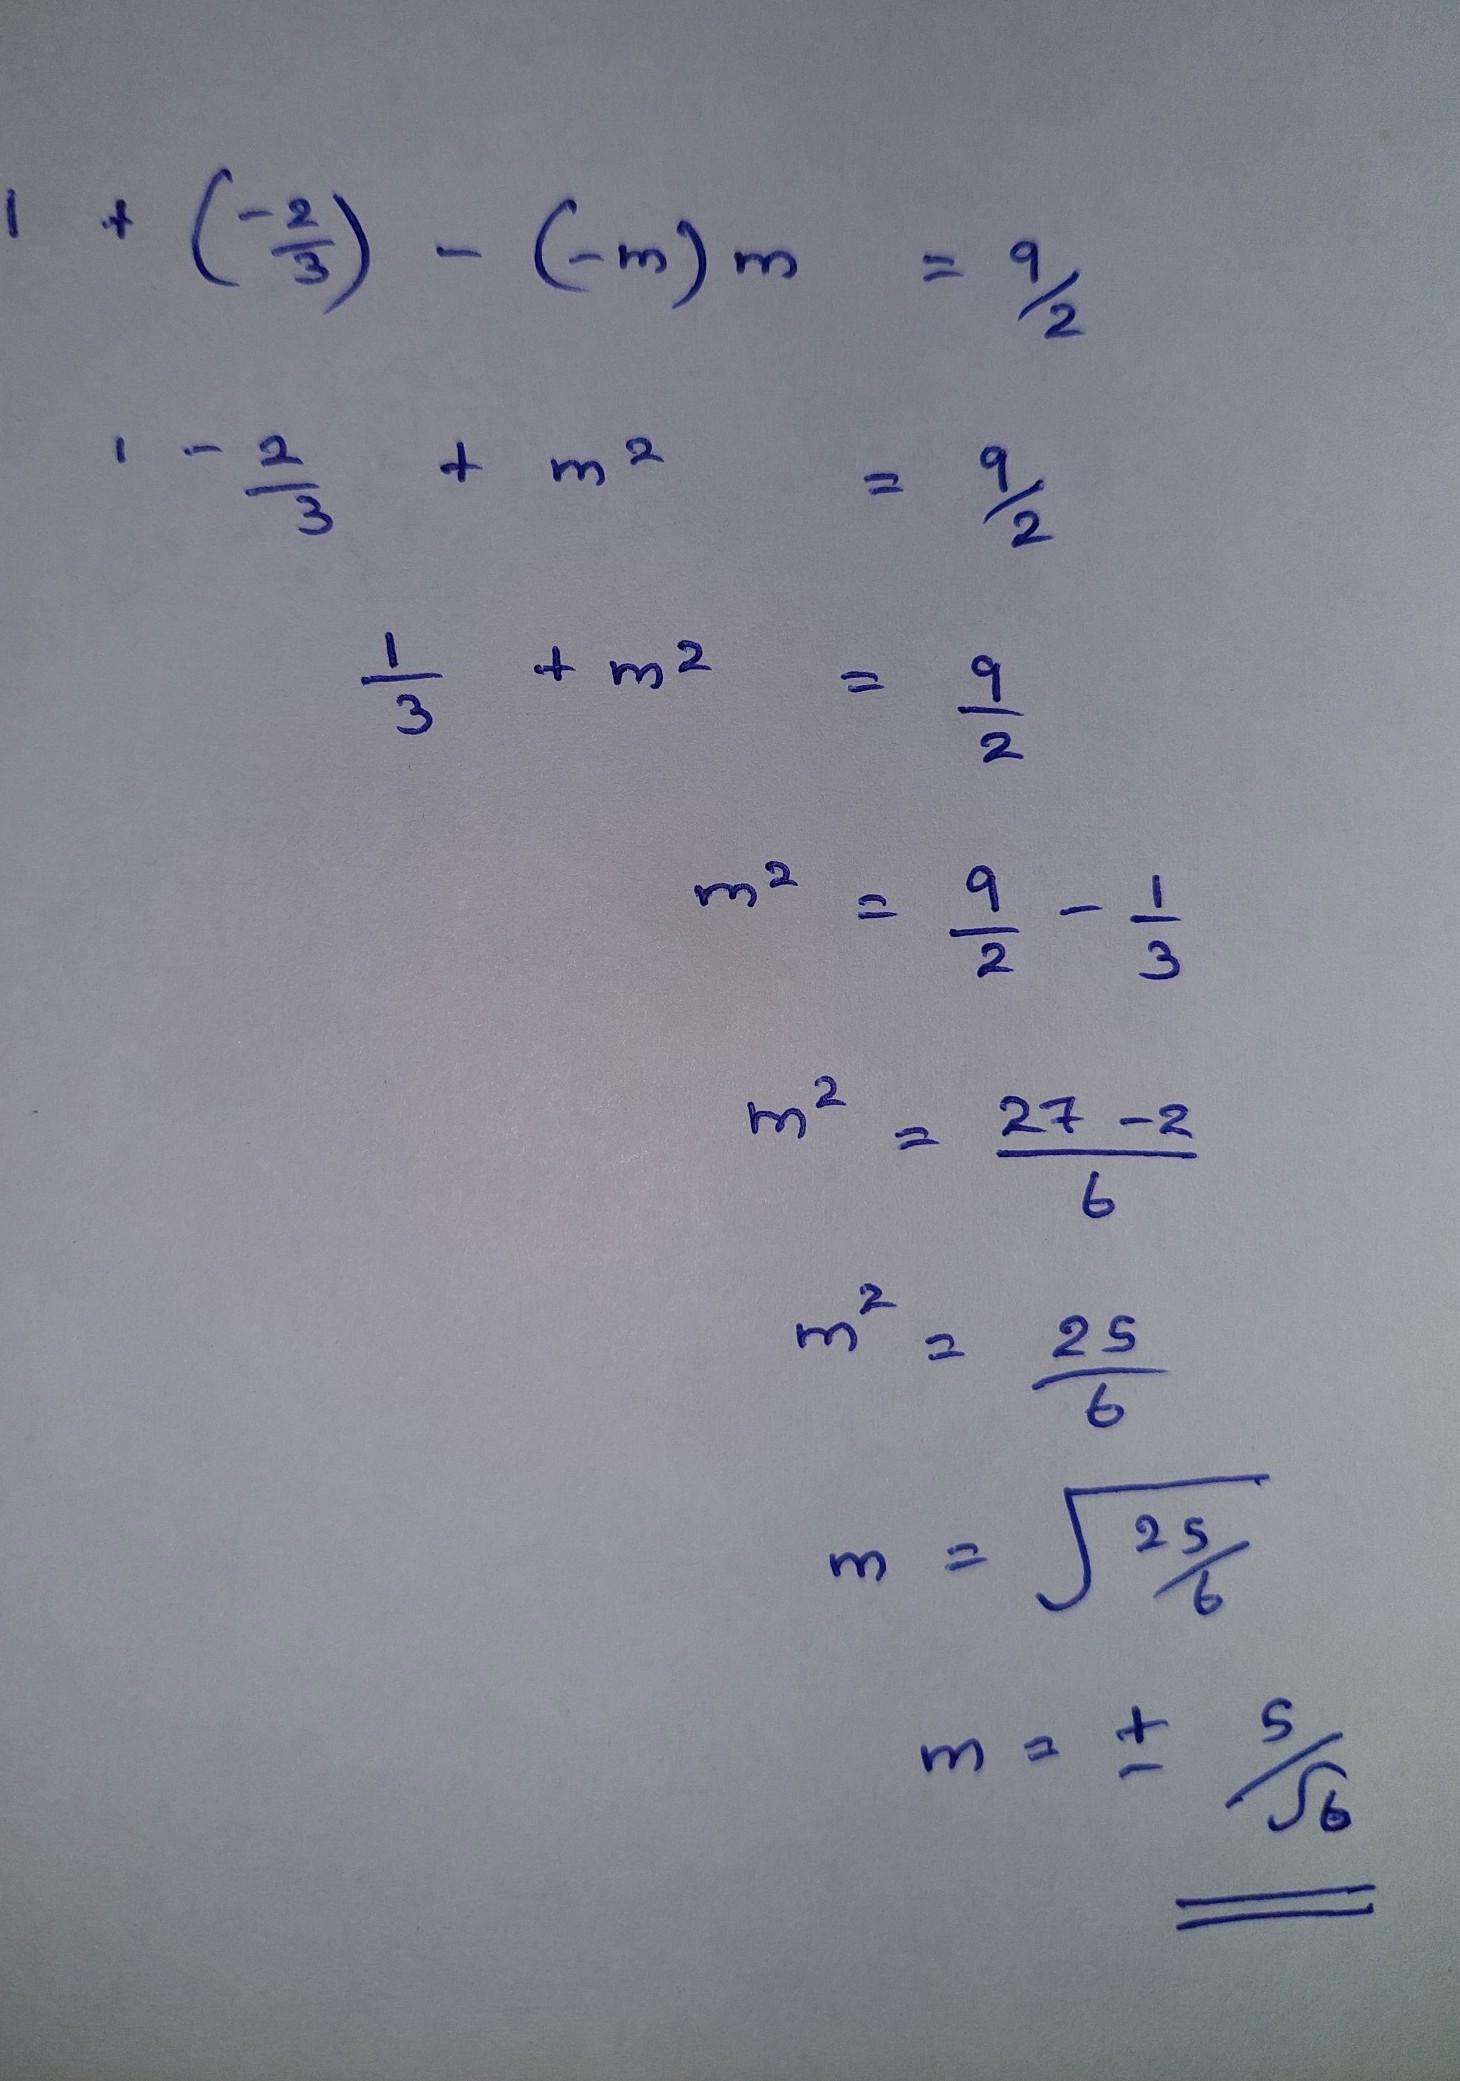 1 + (-2/3) - (-m) m = 9/2
1 - 2/3 + m² = 9/2
1/3 + m² = 9/2
m² = 9/2 - 1/3
m² = 27 - 2/6
m² = 25/6
m = √25/6
m = ± 5/√6